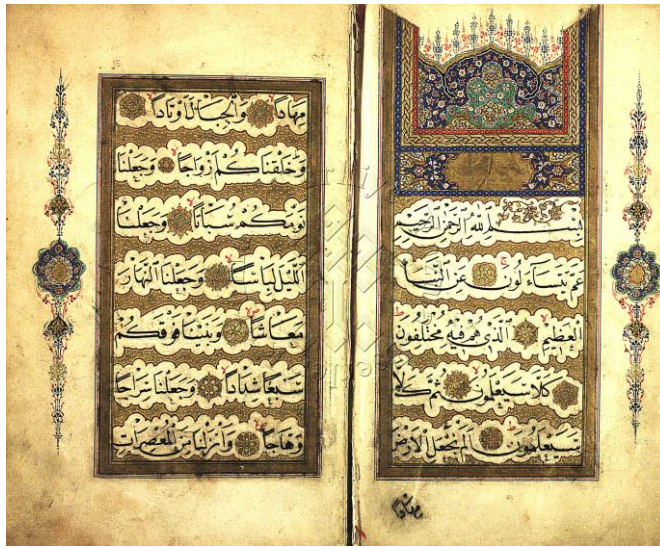 بسم الله الرحمن الرحيم
عم يتساءلون عن النبأ
العظيم الذي هم فيه مختلفون
كلا سيعلمون ثم كلا
سيعلمون الم نجعل الارض
مهادا
مهادا والجبال اوتادا
وخلقناكم ازواجا وجعلنا
نومكم سباتا وجعلنا
الليل لباسا وجعلنا النهار
معاشا وبنينا فوقكم
سبعا شدادا وجعلنا سراجا
وهاجا وانزلنا من المعصرات